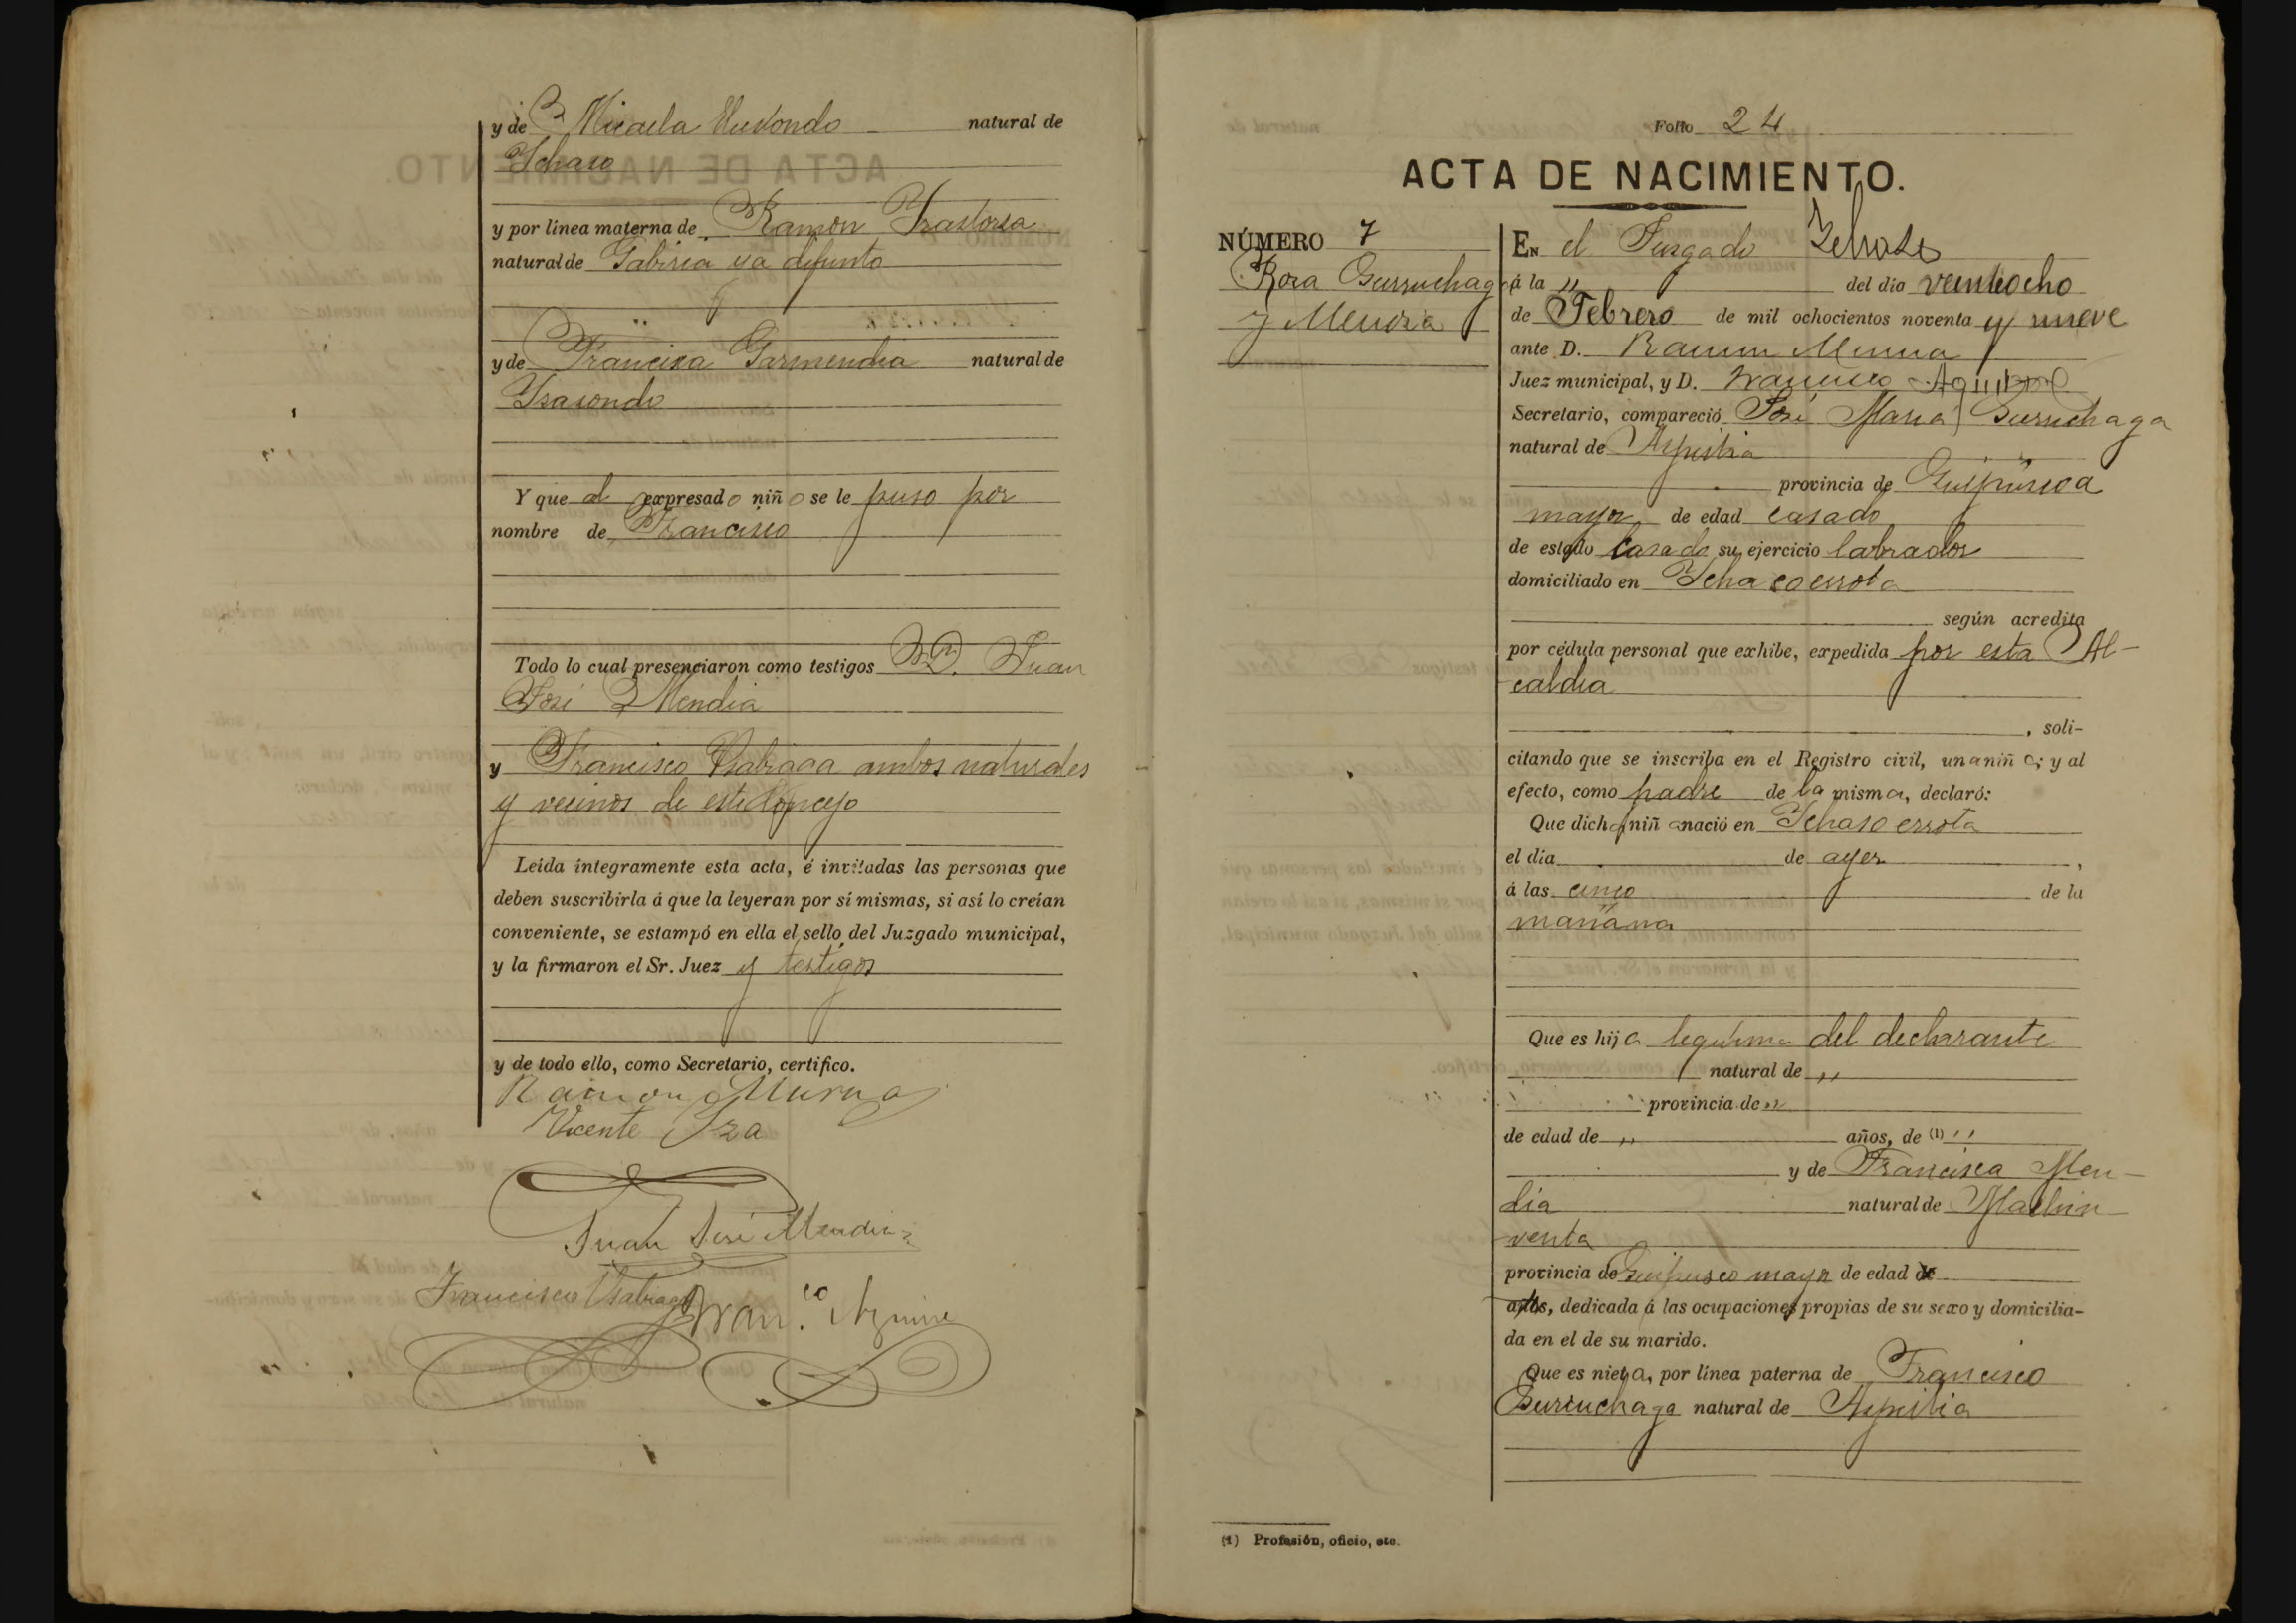 y de Micaela natural de
Ichaso
y por línea materna de Ramón Irastorza
natural de Gabiria ya difunto
y de Francisca Garmendia natural de
Isasondo
Y que al expresado niño se le puso por
nombre de Francisco
Todo lo cual presenciaron como testigos D. Juan
José Mendia
y Francisco Ysabiaga ambos naturales
y vecinos de este Concejo
Leída íntegramente esta acta, é invitadas las personas que
deben suscribirla á que la leyeran por sí mismas, si así lo creían
conveniente, se estampó en ella el sello del Juzgado municipal,
y la firmaron el Sr. Juez y testigos
y de todo ello, como Secretario, certifico.
Ramon Murua
Vicente Iza
Juan José Mendia
Francisco Ysabiaga Fran.co Aguirre
Folio 24
ACTA DE NACIMIENTO.
NÚMERO 7
Rosa Gurruchaga
y Mendia
En el Juzgado Ichaso
á la " del día veintiocho
de Febrero de mil ochocientos noventa y nueve
ante D. Ramon Murua
Juez municipal, y D. Francisco Aguirre
Secretario, compareció José María Gurruchaga
natural de Azpeitia
provincia de Guipúzcoa
mayor de edad casado
de estado casado su ejercicio labrador
domiciliado en Ichasoerrota
según acredita
por cédula personal que exhibe, expedida por esta Al-
caldia
, soli-
citando que se inscriba en el Registro civil, una niña; y al
efecto, como padre de la misma, declaró:
Que dicha niña nació en Ichasoerrota
el día de ayer,
á las cinco de la
mañana
Que es hija legítima del declarante
natural de "
provincia de "
de edad de " años, de (1) "
y de Francisca Men-
dia natural de Machin-
venta
provincia de Guipuzcoa mayor de edad de
años, dedicada á las ocupaciones propias de su sexo y domicilia-
da en el de su marido.
Que es nieta, por línea paterna de Francisco
Gurruchaga natural de Azpeitia
(1) Profesión, oficio, etc.